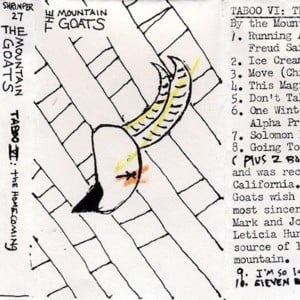 SHRIMPER
27
THE MOUNTAIN
GOATS
TABOO VI: THE HOMECOMING
THE MOUNTAIN
GOATS
TABOO VI: T
By the Moun
1. Running A
Freud Sa
2. Ice Cream
3. Move (Ch
4. This Mag
5. Don't Ta
6. One Wint
Alpha Pr
7. Solomon
8. Going To
(PLUS 2 B
and was rec
California.
Goats wish
most sincer
Mark and Jo
Leticia Hur
source of
mountain.
9. I'M SO
10. ELEVEN